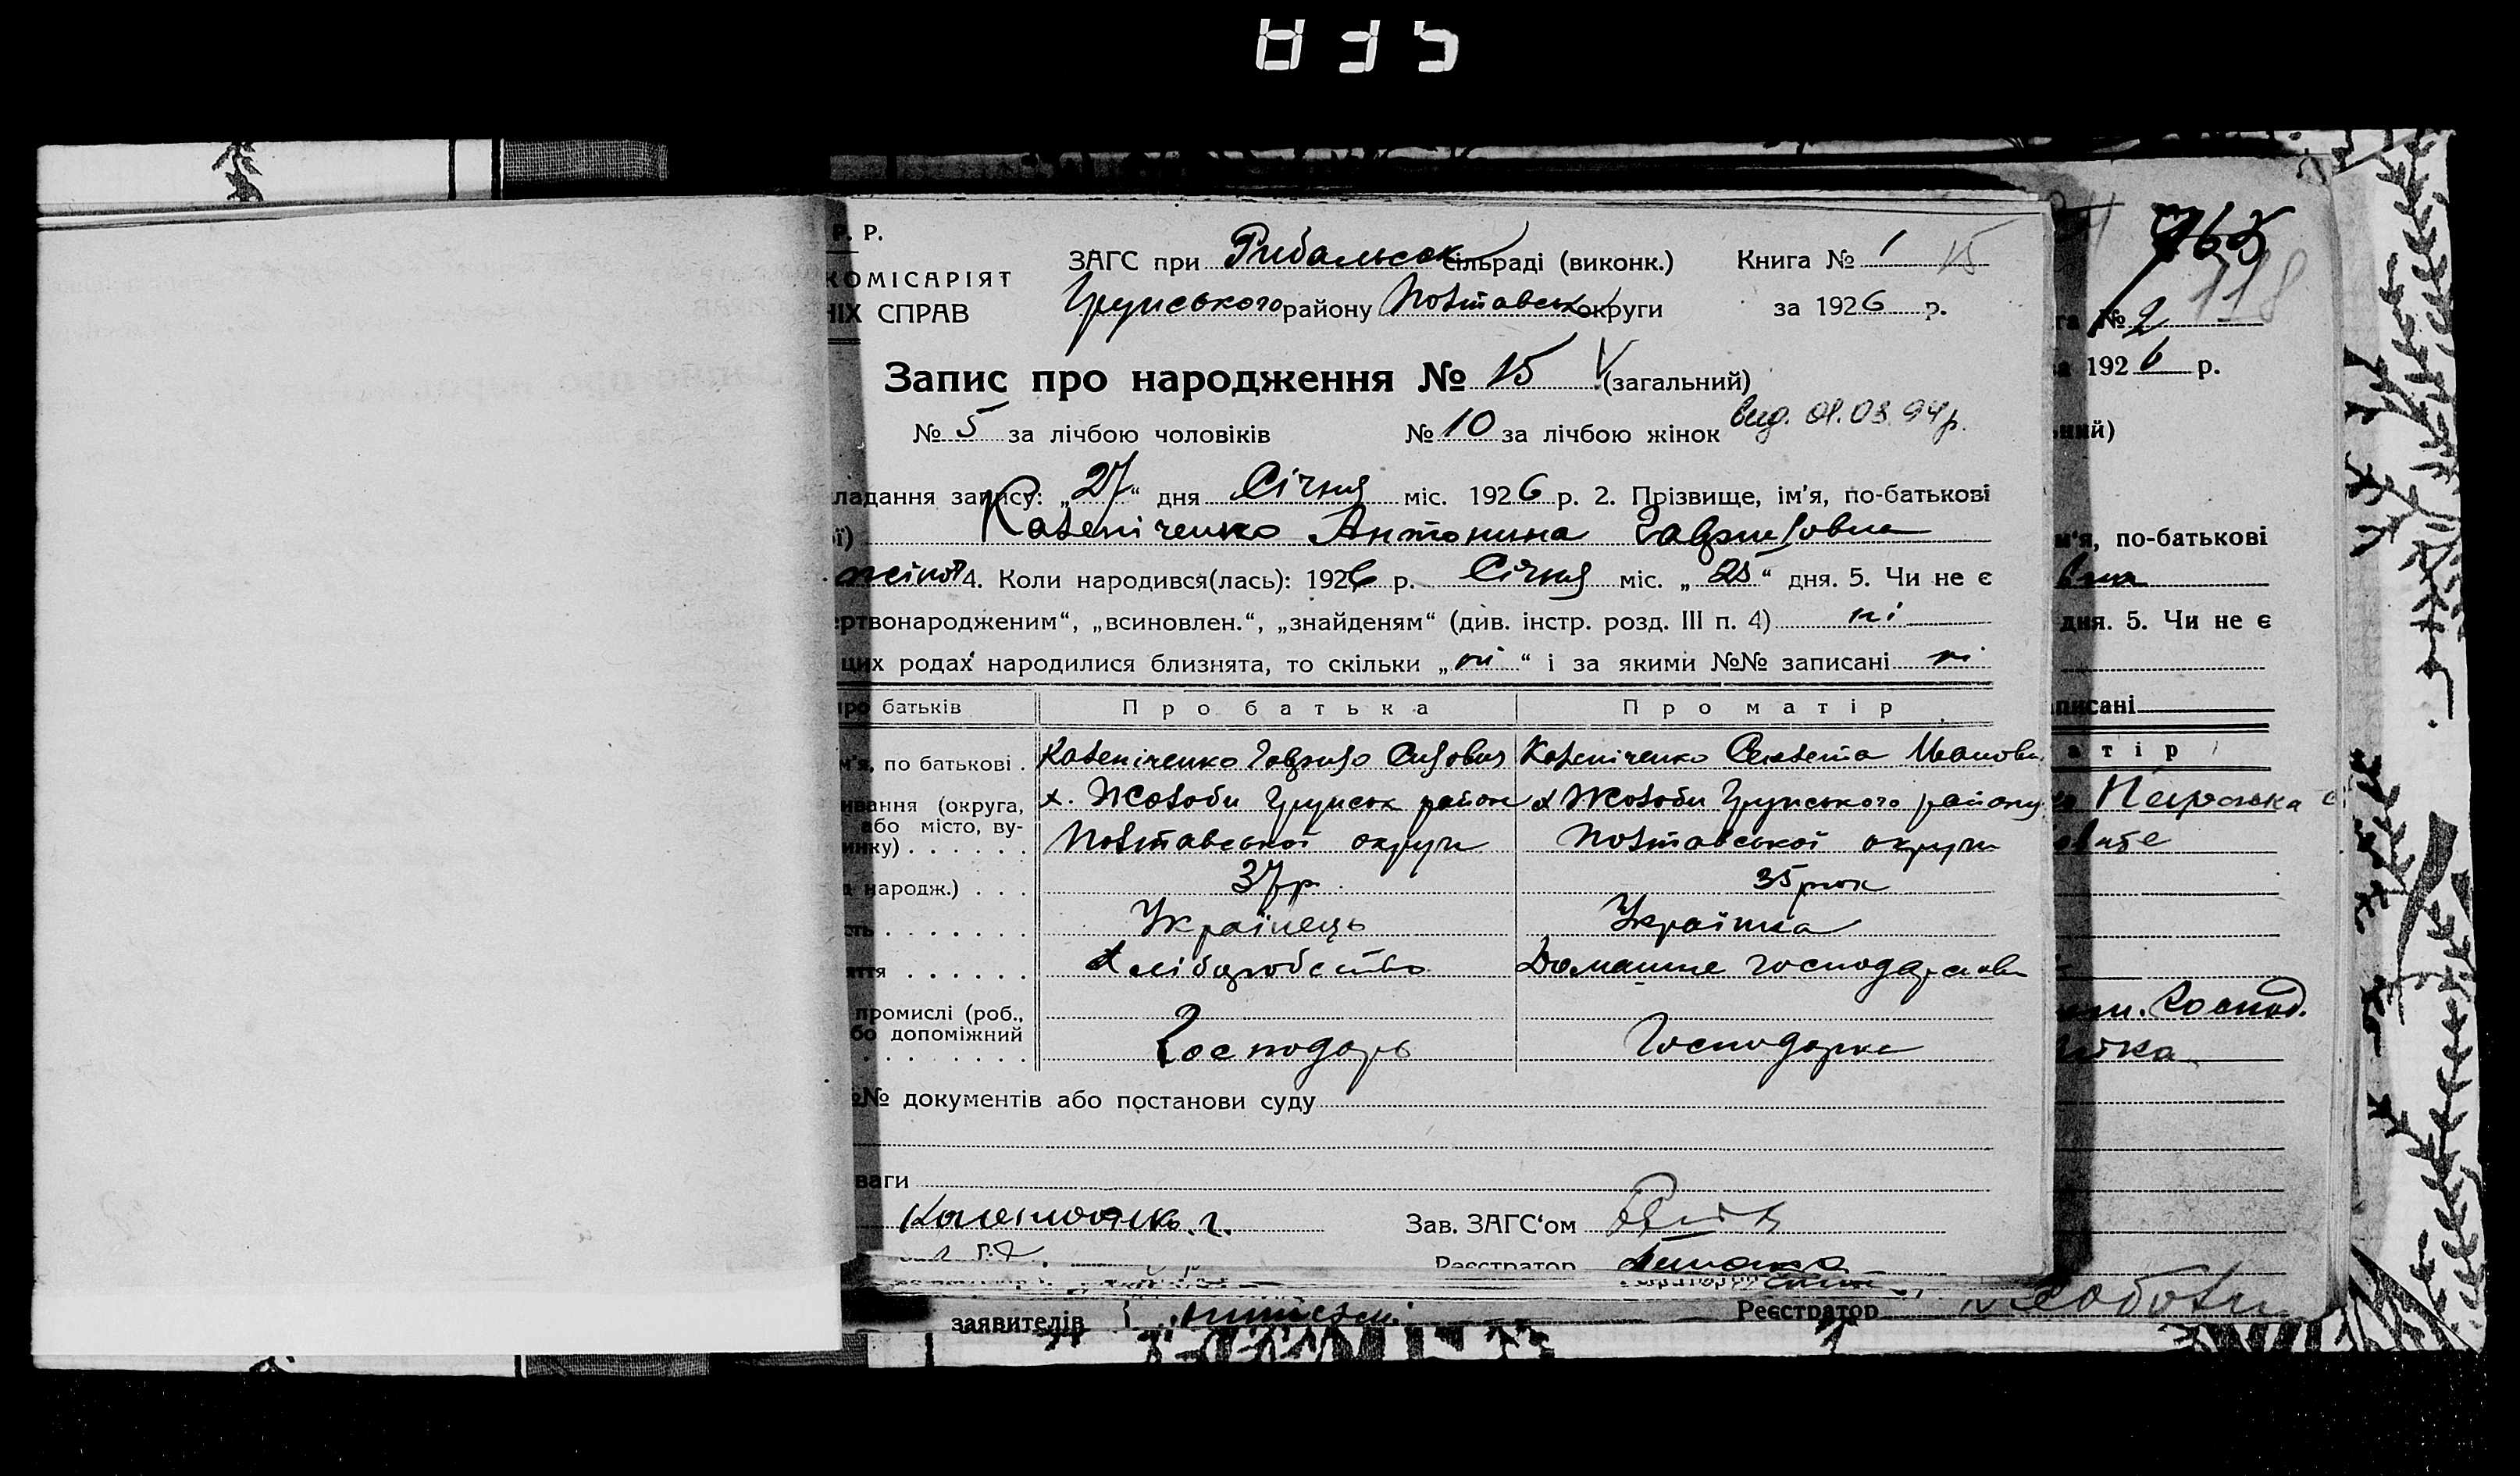 835
Р. Р.
КОМІСАРІЯТ
НІХ СПРАВ
ЗАГС при Рибальськ сільраді (виконк.)
Грунського району Полтавськ округи
Книга № 1 15
за 1926 р.
Запис про народження № 15 (загальний)
№ 5 за лічбою чоловіків № 10 за лічбою жінок вид. 01.03.94р.
ладання запису: „27“ дня Січня міс. 1926 р. 2. Прізвище, ім'я, по-батькові
ї) Каленіченко Антонина Гавриловна
жіноч 4. Коли народився(лась): 1926 р. Січня міс. „25“ дня. 5. Чи не є
ертвонародженим“, „всиновлен.“, „знайденям“ (див. інстр. розд. III п. 4) ні
цих родах народилися близнята, то скільки „ні“ і за якими №№ записані ні
про батьків Про батька Про матір
м'я, по батькові . Каленіченко Гаврило Силович Каленіченко Іванови
ивання (округа, х. Жолоби Грунськ район х Жолоби Грунського району
або місто, ву-
инку) . . . . . . Полтавської округи Полтавської округи
а народж.) . . . 37р. 35 рок
сть . . . . . . . Українець Українка
яття . . . . . . Хліборобство Домашнє господарство
промислі (роб.,
бо допоміжний Господарь Господарка
№№ документів або постанови суду
ваги
Зав. ЗАГС'ом
Реєстратор
заявителів Реєстратор
765
118
га № 2
а 1926 р.
ьний)
м'я, по-батькові
вна
дня. 5. Чи не є
аписані
атір